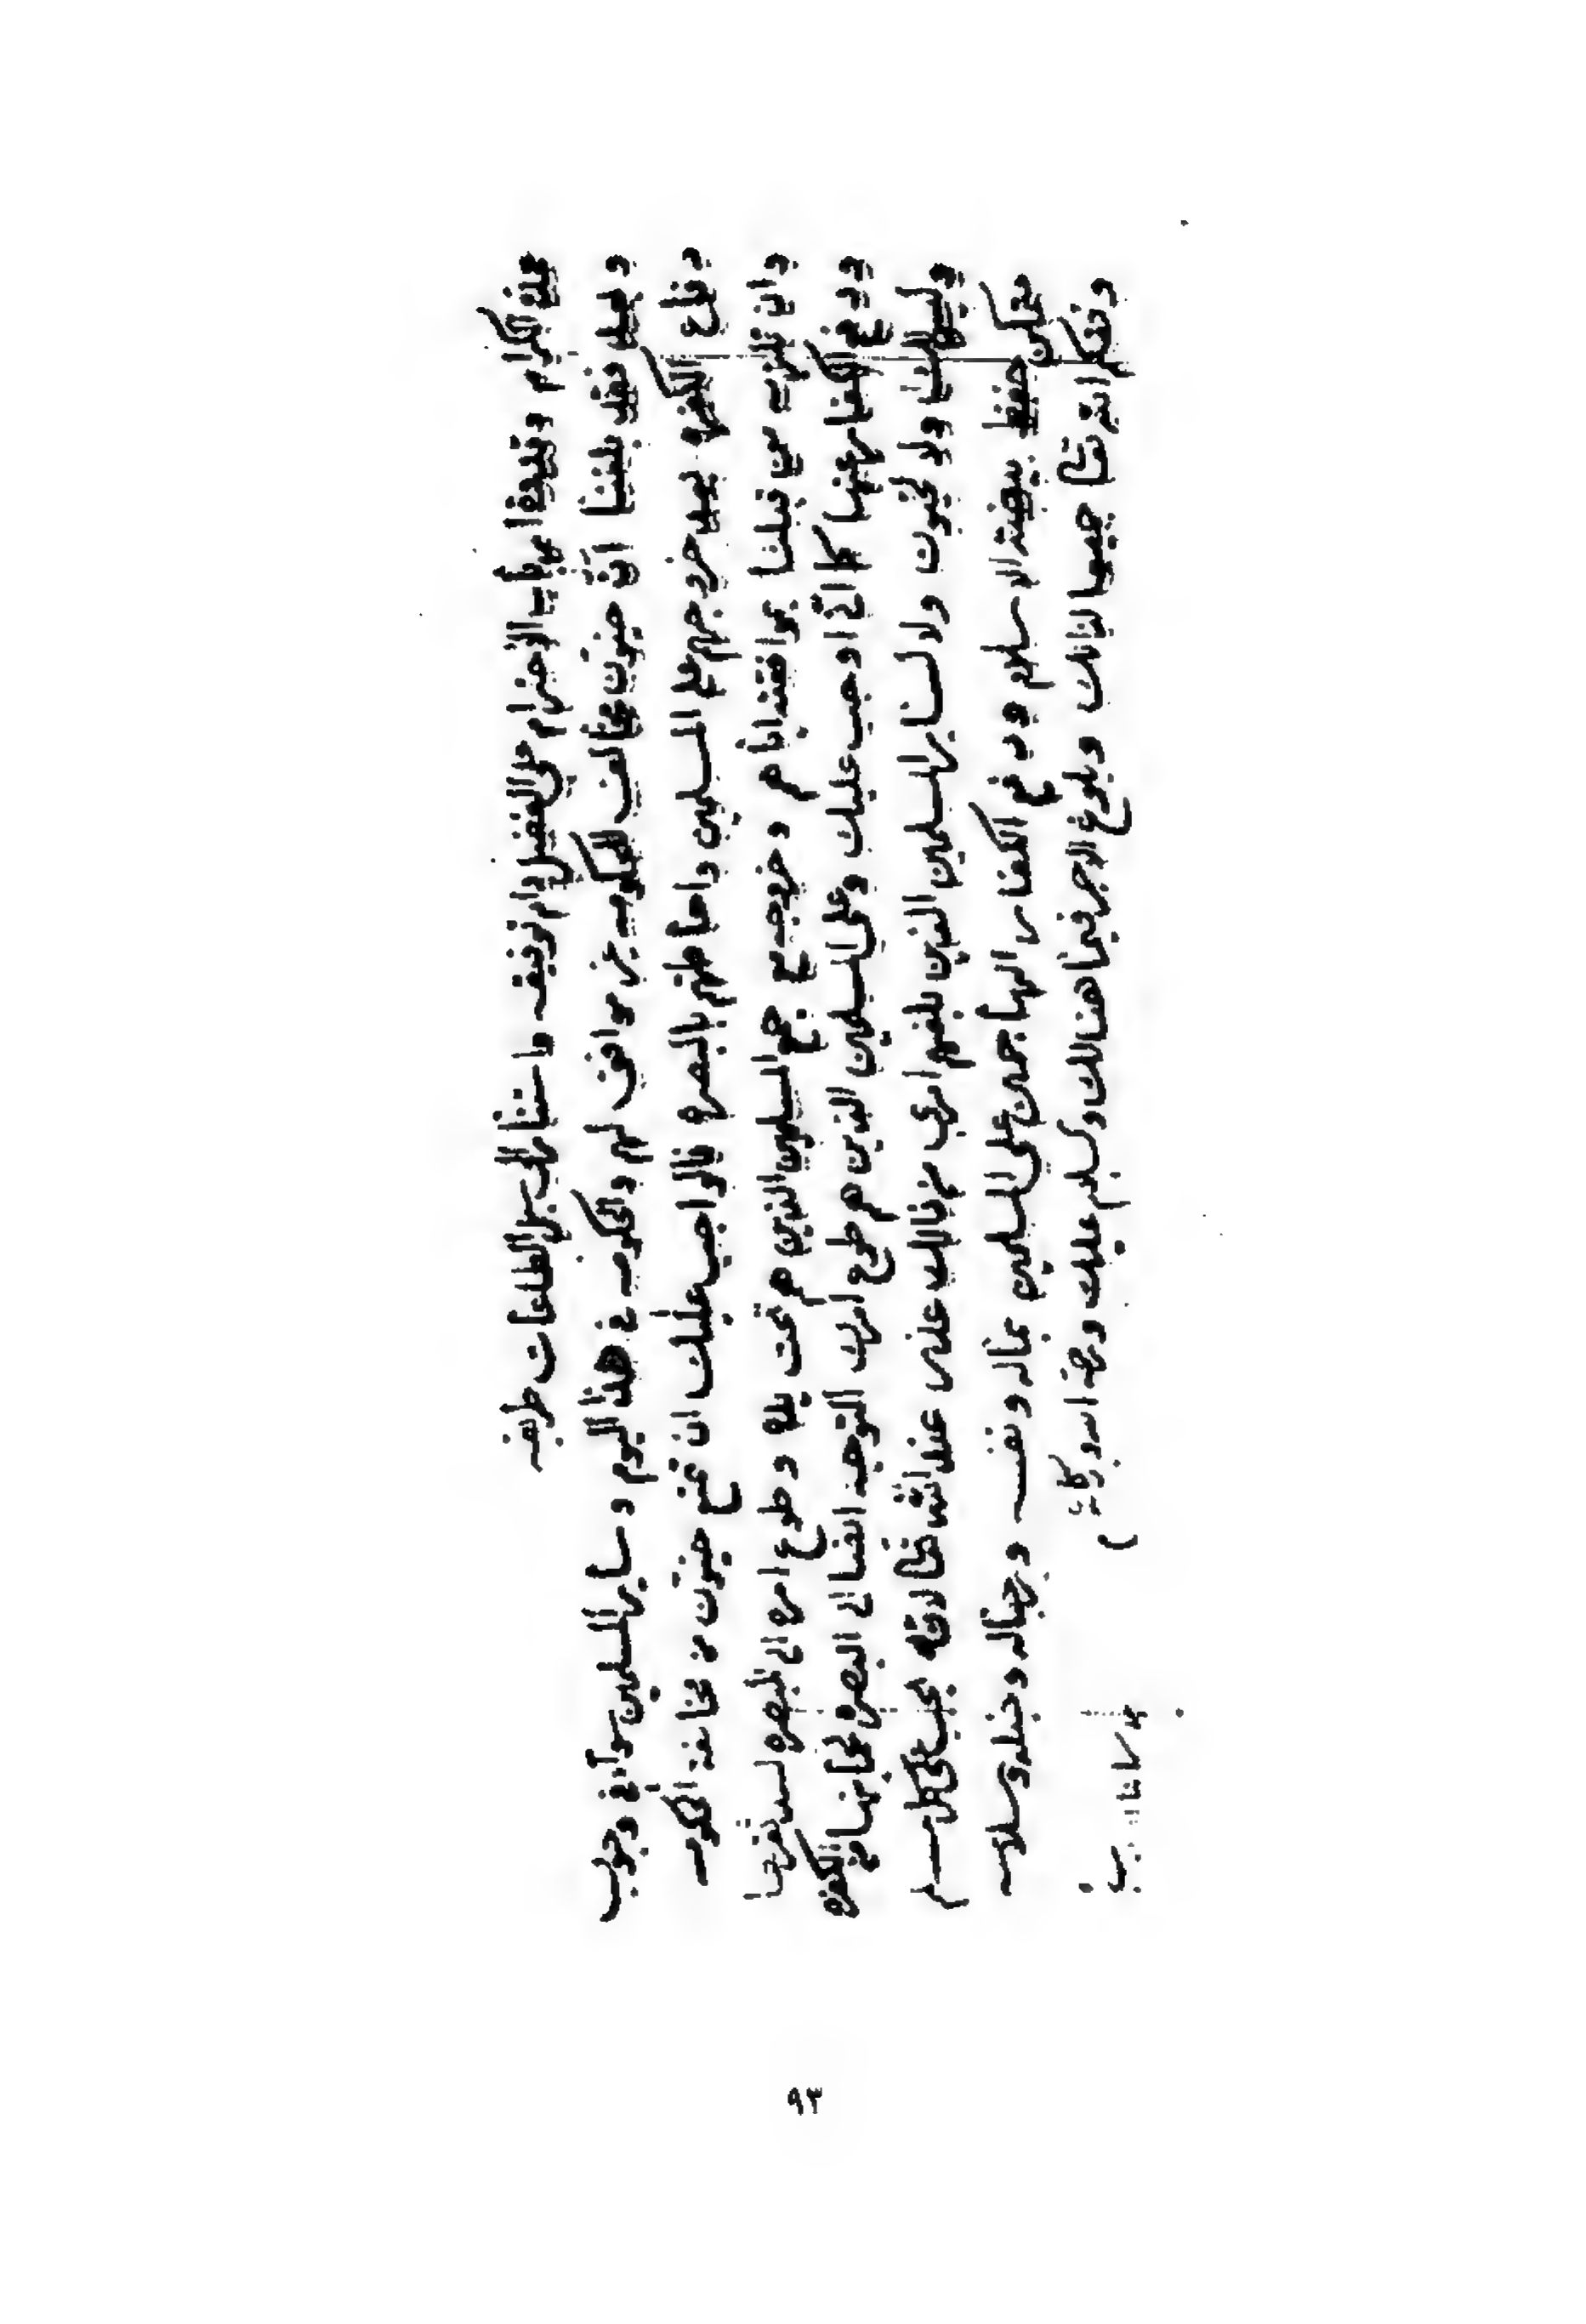 عمدة الكرام وقدوة ارباب الاحترام علي الفضيل دام توفيقه واستنار الى سبل الطاعات طريقه
وبعد فقد بلغنا ان خيون مخالف للحكومه غير موافق لهم والحكومه في هذا اليوم وساير المسلمين سوآء في وجوب
دفاع الكفره بعد خروجهم على المسلمين واحاطتهم بالبصره فالواجب عليك ان تمنع خيون من مخالفة الحكومه
وان تلزمه من قبلنا بموافقته اياهم وخروجه مع جمع المسلمين الذين هم تحت يده وطوع امره الى البصره لسد ثغرها
ودفع الكفار عنها كما انه اوجب عليك وعلى المسلمين الذين هم طوع امرك التوجه ايضا الى البصره الكفره
وليس لنا ولا لخيون ولا لساير المسلمين الذين بلغهم امري بذالك عذر عند الله تعالى لانه يجب على كل مسلم
متمكن حفظ بيضة الاسلام ودفع الكفار المهاجمين على المسلمين بماله ونفسه ورجاله وخيله وسلاحه
وفقكم الله تعالى جميعا لذالك وبلوغ الاجر فيما هنالك والسلام عليك ورحمة الله وبركاته
٩٣